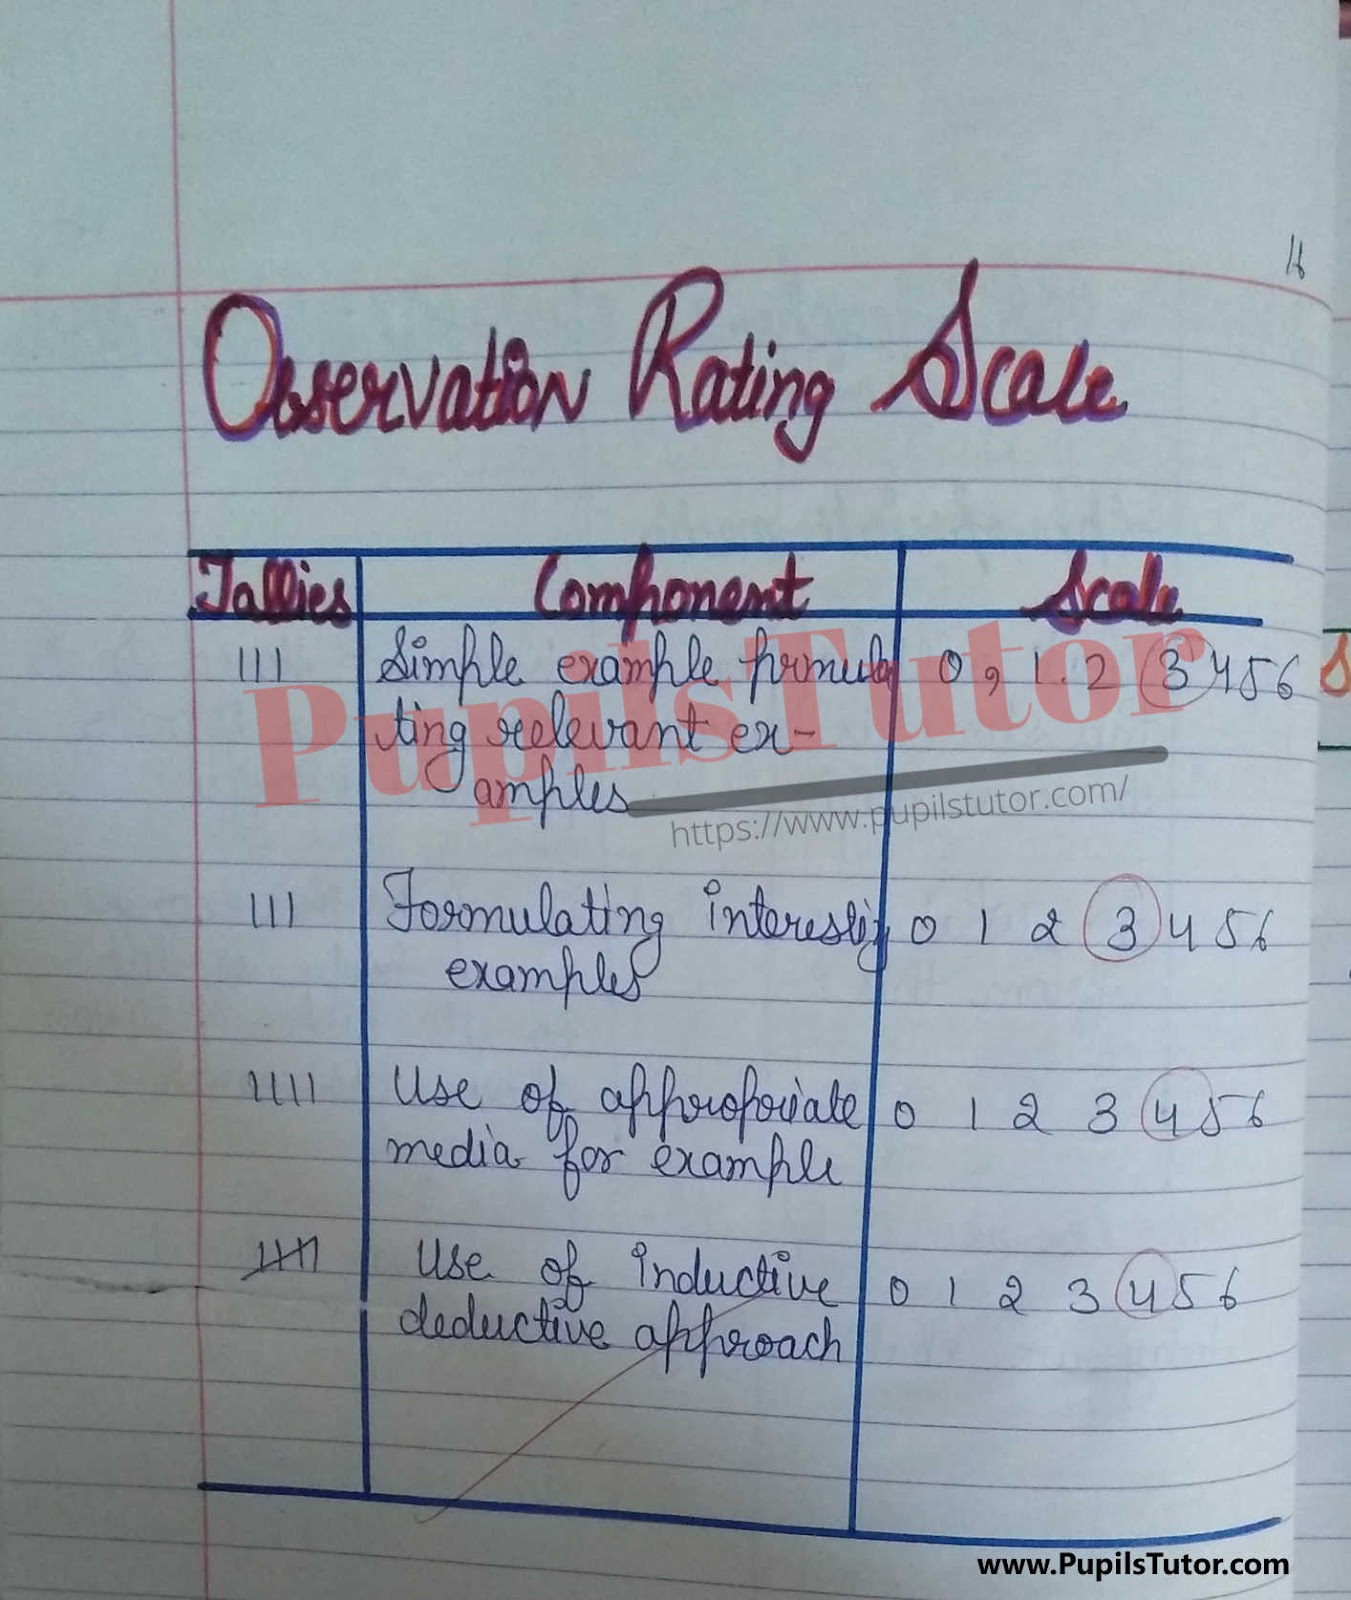 16
Observation Rating Scale
Tallies Component Scale
III Simple example formula 0, 1. 2 3 4 5 6
ting relevant ex-
amples
PupilsTutor
https://www.pupilstutor.com/
III Formulating interesting 0 1 2 3 4 5 6
examples
IIII Use of approporiate 0 1 2 3 4 5 6
media for example
IIII Use of inductive 0 1 2 3 4 5 6
deductive approach
www.PupilsTutor.com